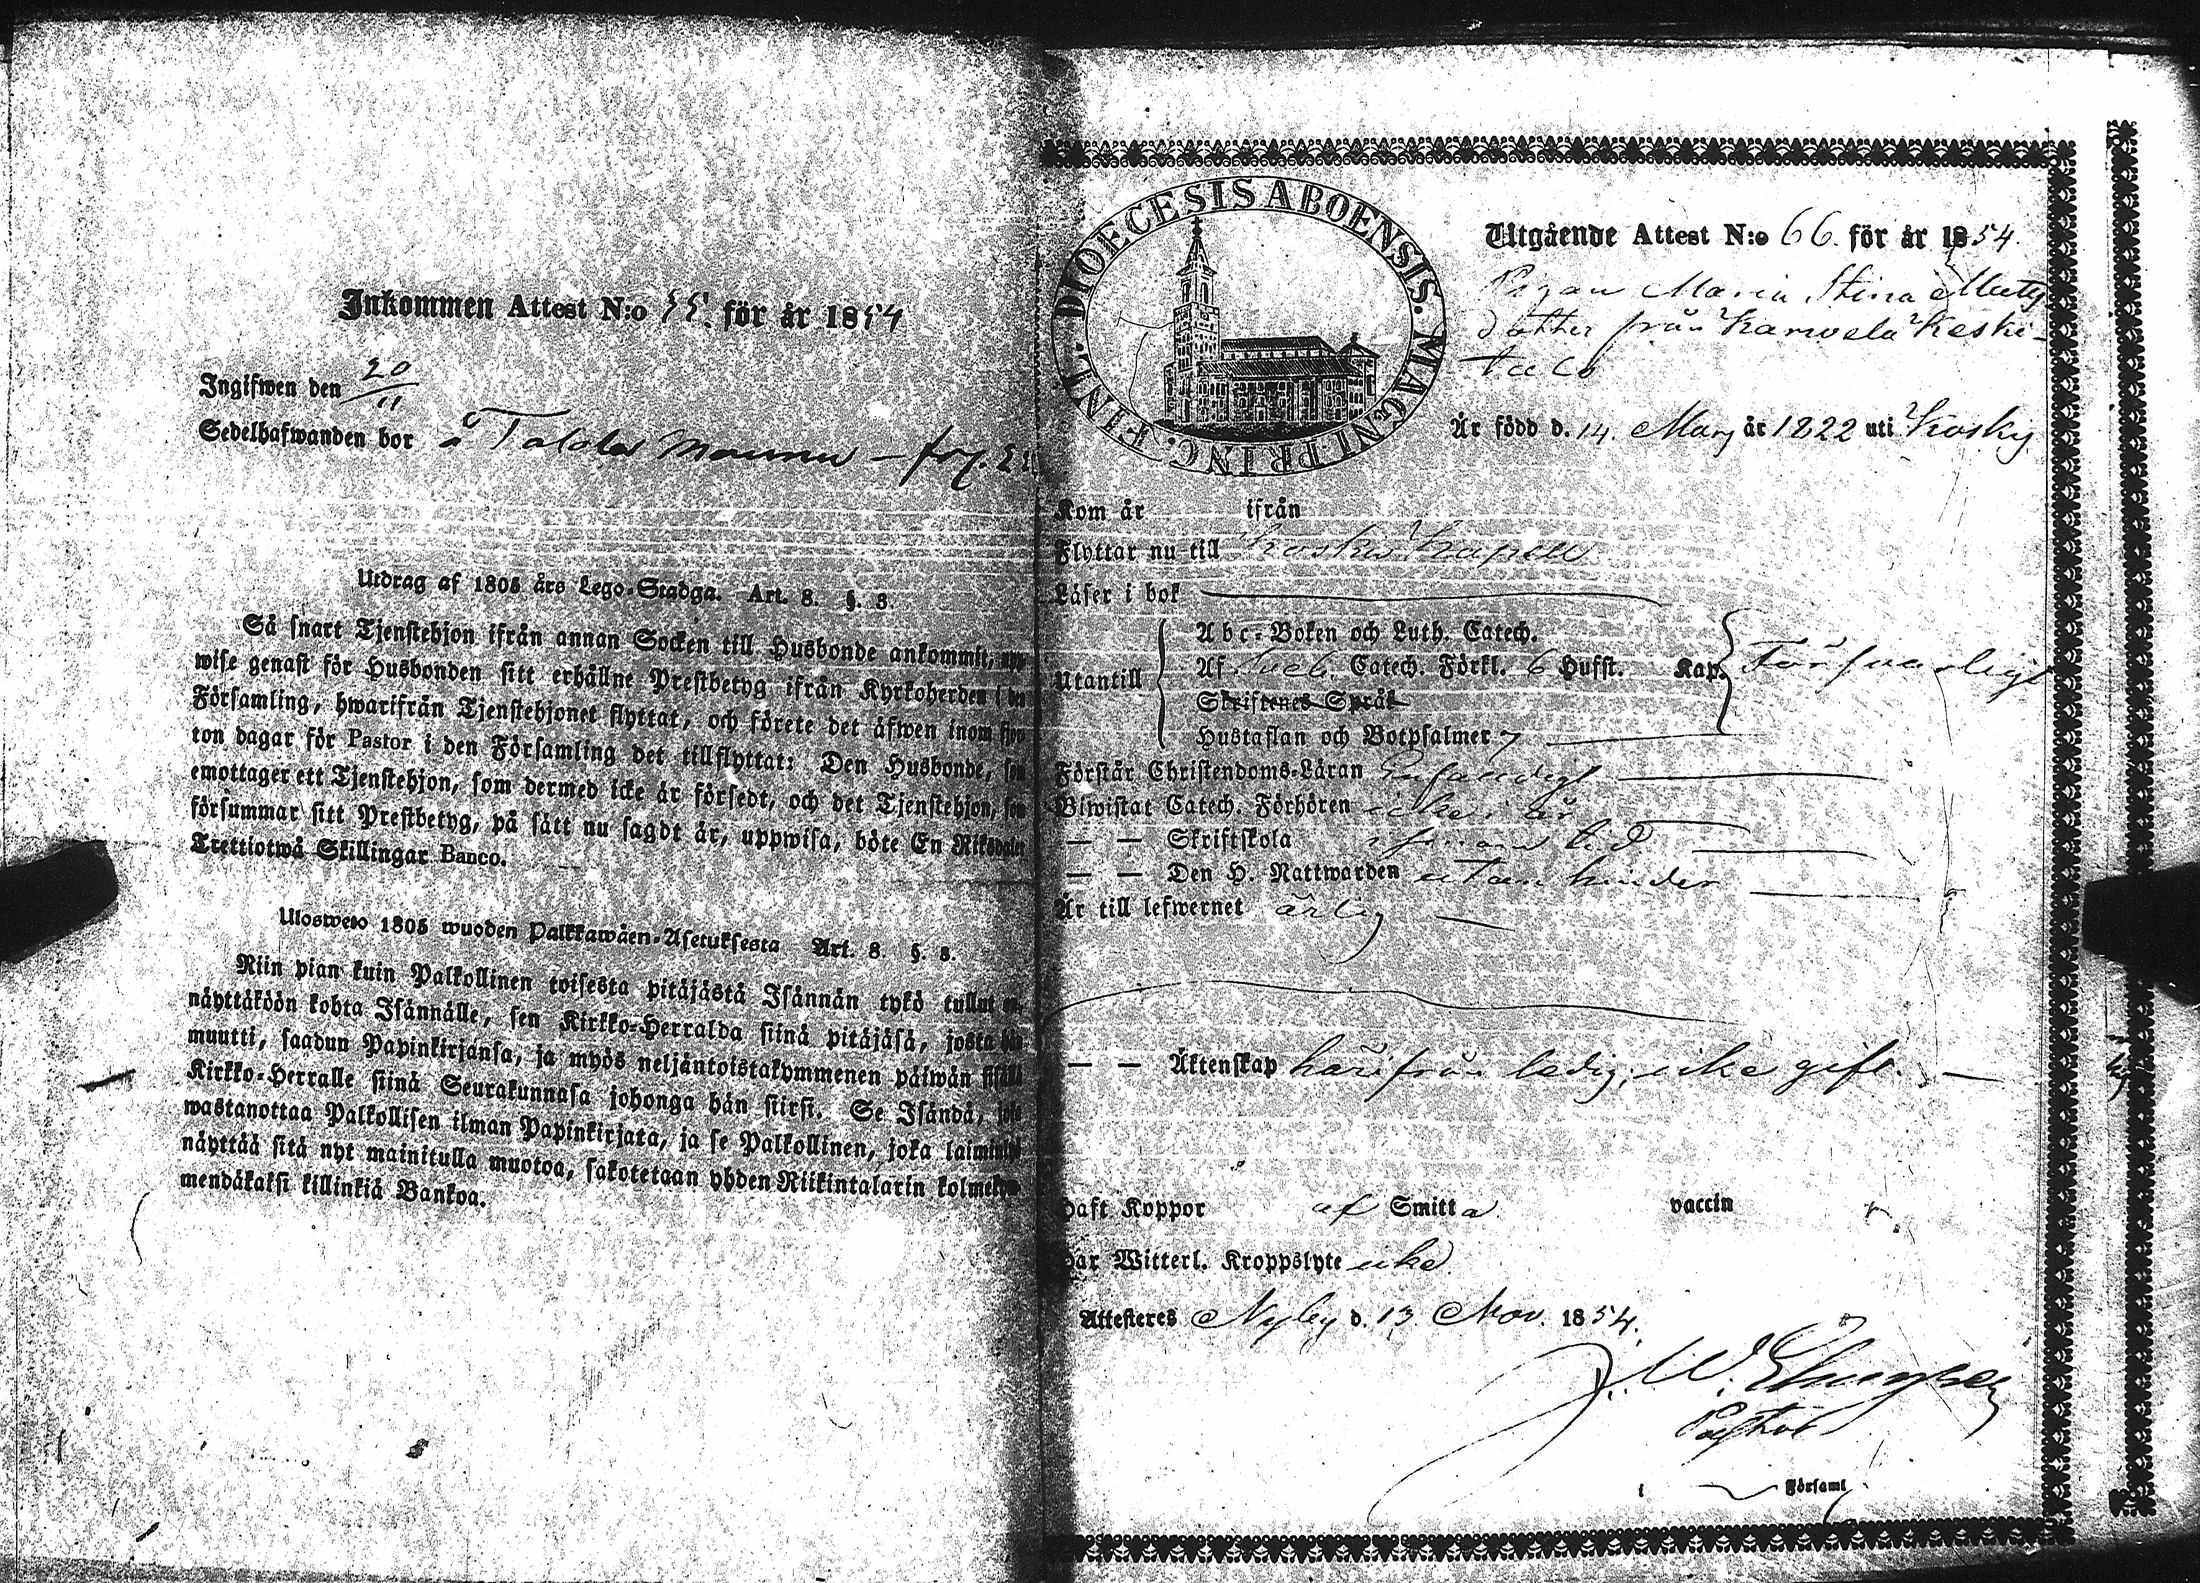 Inkommen Attest N:o 55. för år 1854
Ingifwen den 20/11
Sedelhafwanden bor å Talola Mannu –
Utdrag af 1805 års Lego-Stadga. Art. 8. §. 3.
Så snart Tjenstehjon ifrån annan Socken till Husbonde ankommit, upp-
wise genast för Husbonden sitt erhållne Prestbetyg ifrån Kyrkoherden i den
Församling, hwarifrån Tjenstehjonet flyttat, och förete det äfwen inom fjor-
ton dagar för Pastor i den Församling det tillflyttat: Den Husbonde, som
emottager ett Tjenstehjon, som dermed icke är försedt, och det Tjenstehjon, som
försummar sitt Prestbetyg, på sätt nu sagdt är, uppwisa, böte En Riksdaler
Trettiotwå Skillingar Banco.
Ulosweto 1805 wuoden Palkkawäen-Asetuksesta Art. 8. §. 3.
Niin pian kuin Palkollinen toisesta pitäjästä Isännän tykö tullut on,
näyttäköön kohta Isännälle, sen Kirkko-Herralda siinä pitäjäsä, josta hän
muutti, saadun Papinkirjansa, ja myös neljäntoistakymmenen päiwän sisällä
Kirkko-Herralle siinä Seurakunnasa johonga hän siirsi. Se Isändä, joka
wastanottaa Palkollisen ilman Papinkirjata, ja se Palkollinen, joka laiminlyö
näyttää sitä nyt mainitulla muotoa, sakotetaan yhden Riikintalarin kolmekym-
mendäkaksi killinkiä Bankoa.
FINL. DIOECESIS ABOENSIS. MAGNI PRINC.
Utgående Attest N:o 66. för år 1854.
Pigan Maria Stina Matts
dotter från Karwela Keski-
talo
Är född d. 14. Marz år 1822 uti Kosky
Kom år ifrån
Flyttar nu till Koskis Kapell
Läser i bok
Utantill
Abc-Boken och Luth. Catech.
Af Sveb. Catech. Förkl. 6 Hufst. Kap. Försvarligt
Skriftenes Språk
Hustaflan och Botpsalmer 7
Förstår Christendoms-Läran Enfaldigt
Biwistat Catech. Förhören icke i år
— — Skriftskola i sinom tid
— — Den H. Nattwarden utan hinder
Är till lefwernet ärlig
— — Äktenskap härifrån ledig; icke gift.
Haft Koppor af Smitta vaccin
Har Witterl. Kroppslyte icke
Attesteres Nyby d. 13. Nov. 1854.
Pastor
i Församl